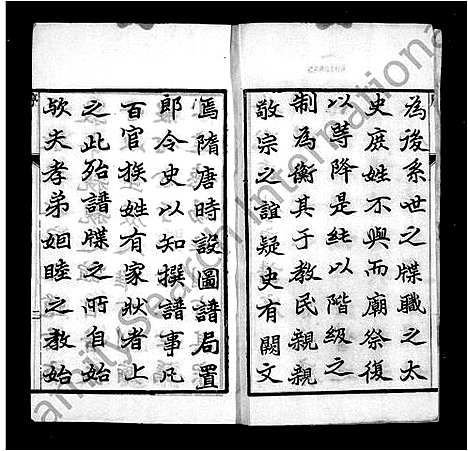 為後系世之牒職之太
史庶姓不興而廟祭復
以等降是純以階級之
制為衡其于教民親親
敬宗之誼疑史有闕文
焉隋唐時設圖譜局置
郎令史以知撰譜事凡
百官族姓有家狀者上
之此殆譜牒之所自始
歟夫孝弟姻睦之教始
二
FamilySearch International